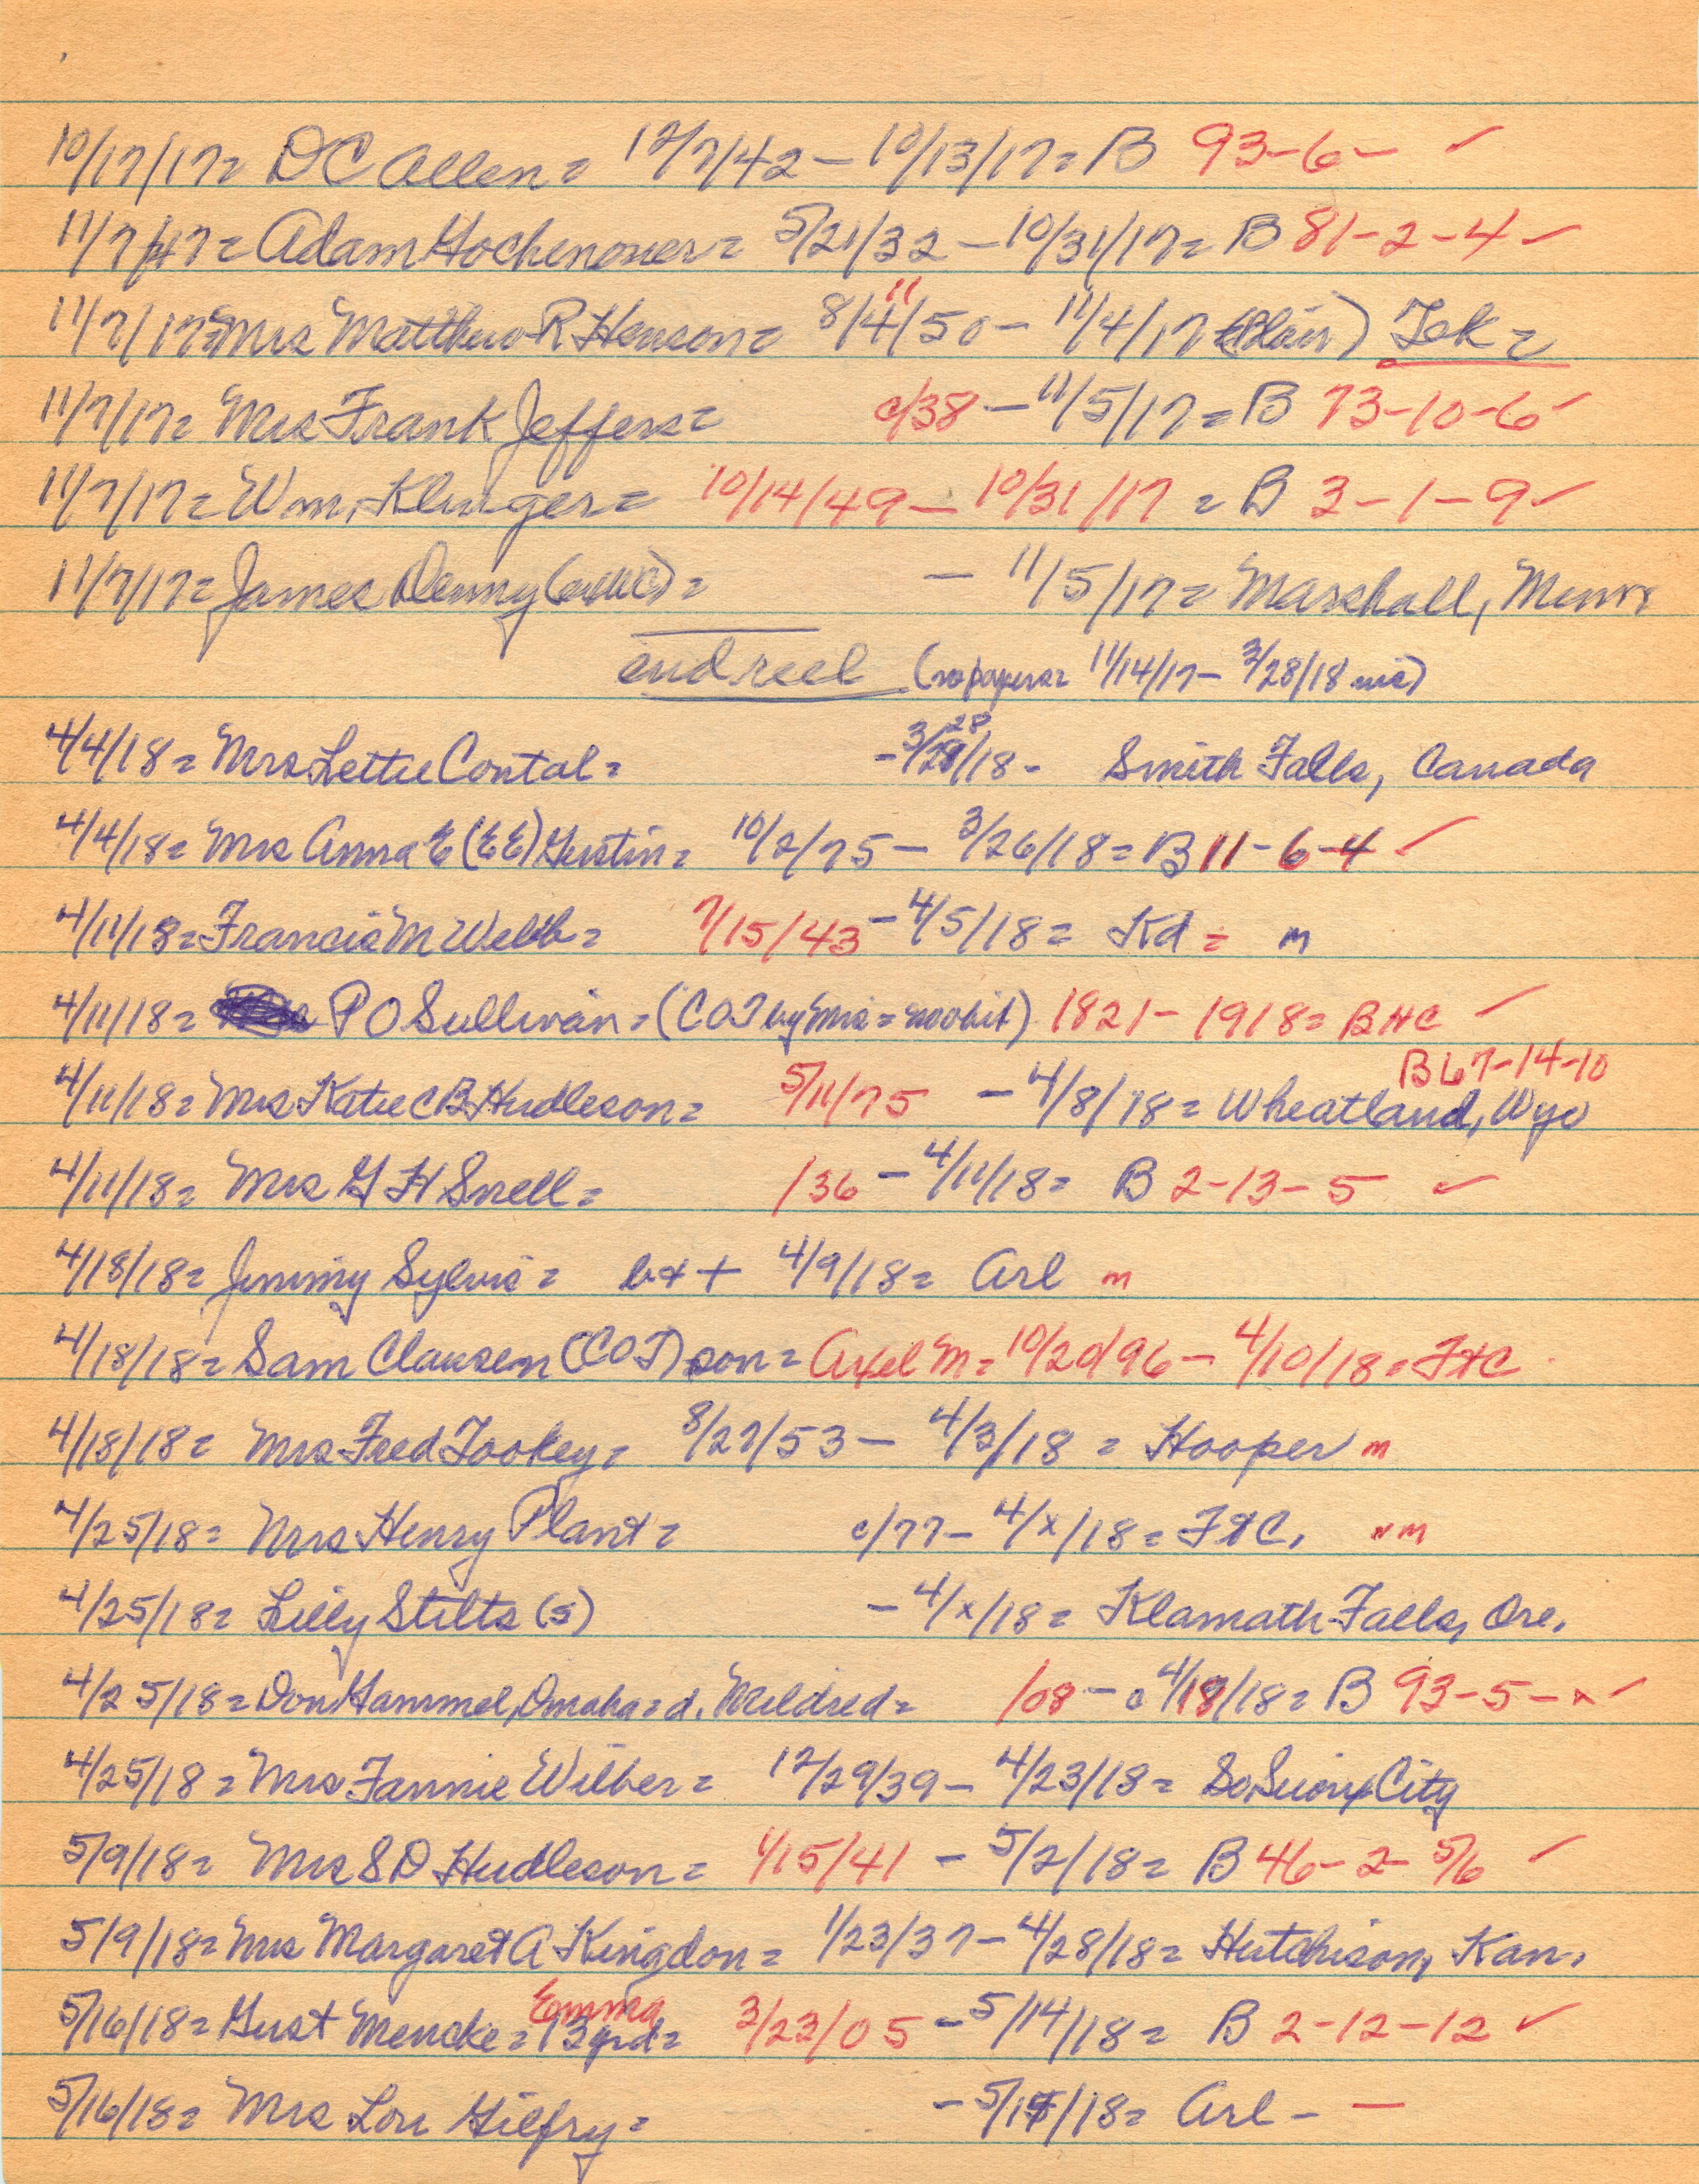 10/17/17= D C Allen= 12/7/42 - 10/13/17= B 93-6- ✓
11/7/17= Adam Gochenouer= 5/21/32 - 10/31/17= B 81-2-4 ✓
11
11/7/17= Mrs Matthew R Henson= 8/4/50 - 11/4/17 (Blair) Tek=
11/7/17= Mrs Frank Jeffers= c/38 - 11/5/17= B 73-10-6 ✓
11/7/17= Wm. Klinger= 10/14/49 - 10/31/17 = B 3-1-9 ✓
11/7/17= James Denny = - 11/5/17= Marshall, Minn
end reel (no papers= 11/14/17- 3/28/18 inc)
28
4/4/18= Mrs Lettie Contal= -3/28/18- Smith Falls, Canada
4/4/18= Mrs Anna E (EE) Gerstin= 10/2/75 - 3/26/18= B 11-6-4 ✓
4/11/18= Francis M Webb= 7/15/43 - 4/5/18= Kd = m
4/11/18= P O Sullivan= (COT by Mrs = no obit) 1821 - 1918= BHC ✓
B 67-14-10
4/11/18= Mrs Katie C B Hudleson= 5/11/75 - 4/8/18= Wheatland, Wyo
4/11/18= Mrs G H Snell= /36 - 4/11/18= B 2-13-5 ✓
4/18/18= Jimmy Sylvis= b++ 4/9/18= Arl m
4/18/18= Sam Clausen (COT) son= Axel M= 10/20/96 - 4/10/18= FtC
4/18/18= Mrs Fred Tookey= 8/27/53 - 4/3/18 = Hooper m
4/25/18= Mrs Henry Plant= c/77- 4/x/18= FtC. nm
4/25/18= Lilly Stilts (s) - 4/x/18= Klamath Falls, Ore.
4/25/18= Don Hammel, Omaha= d. Mildred= /08 - c 4/18/18= B 93-5-x ✓
4/25/18= Mrs Fannie Wilber= 12/29/39 - 4/23/18= So Sioux City
5/9/18= Mrs S D Hudleson= 1/15/41 - 5/2/18= B 46-2-5/6 ✓
5/9/18= Mrs Margaret A Kingdon= 1/23/37 - 4/28/18= Hutchison, Kan.
Emma
5/16/18= Gust Mencke= 13 yrd= 3/23/05 - 5/14/18= B 2-12-12 ✓
5/16/18= Mrs Lou Gilfry= - 5/15/18= Arl - -